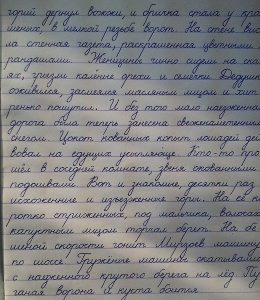 горий дернул вожжи, и бричка стала у кра
шеных, в мелкой резьбе ворот. На стене вис
ла стенная газета, раскрашенная цветными
рандашами. Женщины чинно сидели на ска
ях, грызли каленые орехи и семечки. Дедушк
оживился, засмеялся масленым лицом и хит
ренько пошутил. И без того мало наезженна
дорога была теперь занесена свежеметенным
снегом. Цокот кованных копыт лошадей де
вовал на едущих усыпляюще. Кто-то про
шёл в соседней комнате, звеня окованными
подошвами. Вот и знакомые, десятки раз
исхоженные и изъезженные горы. На её ко
ротко стриженных, под мальчика, волосах
капустным мицом торчал берет. На бе
шеной скорости гонит Мурзаев машину
по шоссе. Гружёные машины скатывали
с наезженного крутого берега на лёд. Пу
ганая ворона и куста боится.